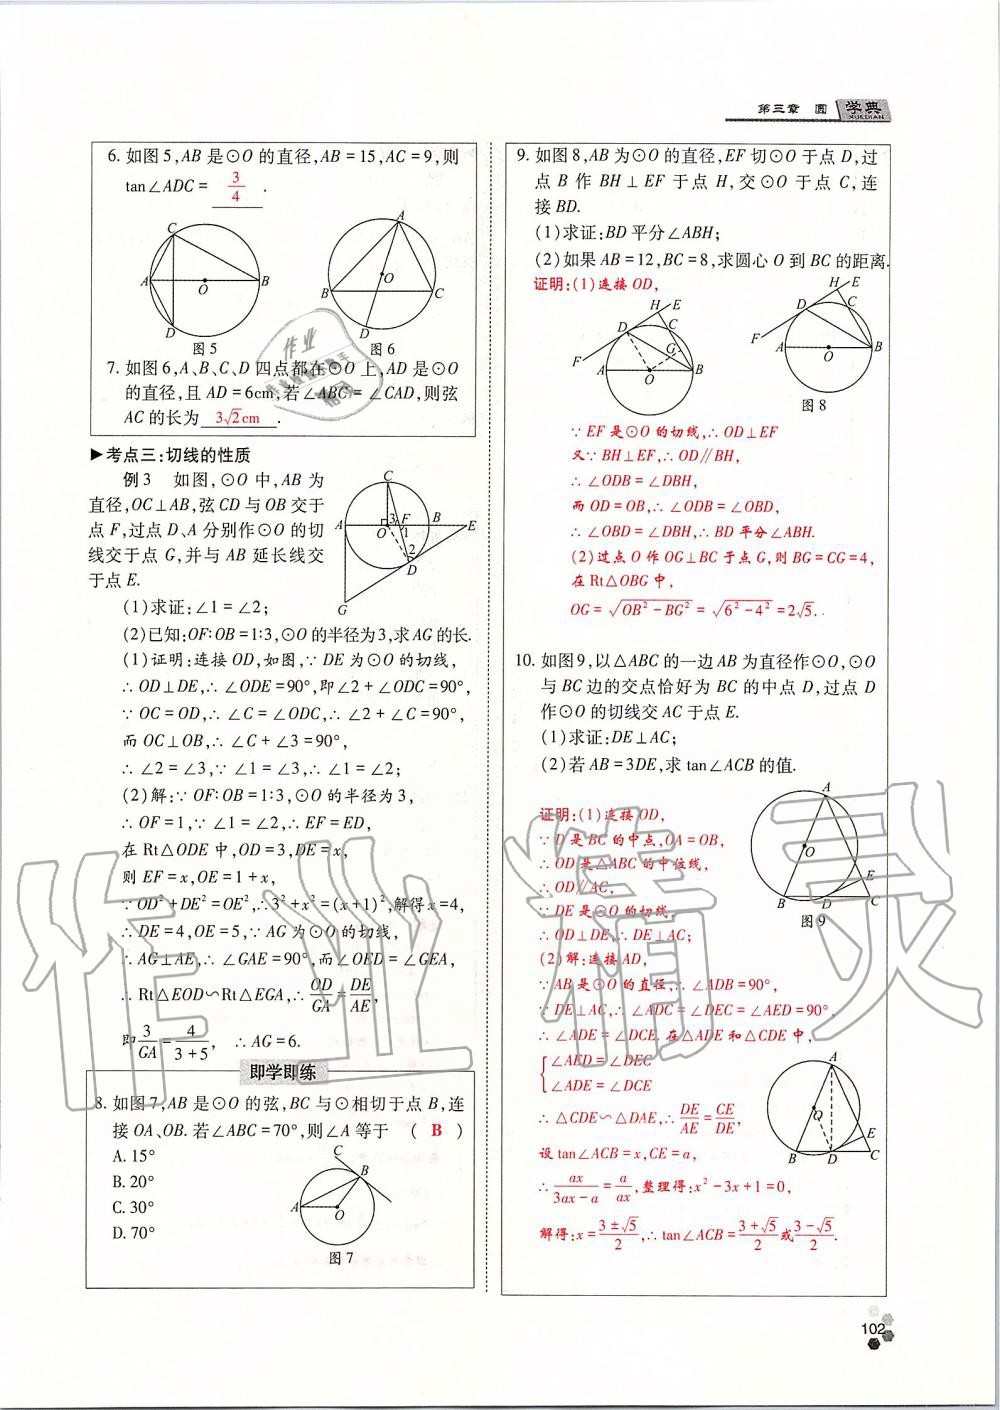 第三章 圆 学典
XUEDIAN
6. 如图5,AB是⊙O的直径,AB=15,AC=9,则
tan∠ADC= 3/4 .
C
A
O
B
D
图5
A
O
B
C
D
图6
7. 如图6,A、B、C、D四点都在⊙O上,AD是⊙O
的直径,且AD=6cm,若∠ABC=∠CAD,则弦
AC的长为 3√2cm .
▶考点三:切线的性质
例3 如图,⊙O中,AB为
直径,OC⊥AB,弦CD与OB交于
点F,过点D、A分别作⊙O的切
线交于点G,并与AB延长线交
于点E.
C
A
3
F
B
E
O
1
2
D
G
(1)求证:∠1=∠2;
(2)已知:OF∶OB=1∶3,⊙O的半径为3,求AG的长.
(1)证明:连接OD,如图,∵DE为⊙O的切线,
∴OD⊥DE,∴∠ODE=90°,即∠2+∠ODC=90°,
∵OC=OD,∴∠C=∠ODC,∴∠2+∠C=90°,
而OC⊥OB,∴∠C+∠3=90°,
∴∠2=∠3,∵∠1=∠3,∴∠1=∠2;
(2)解:∵OF∶OB=1∶3,⊙O的半径为3,
∴OF=1,∵∠1=∠2,∴EF=ED,
在Rt△ODE中,OD=3,DE=x,
则EF=x,OE=1+x,
∵OD²+DE²=OE²,∴3²+x²=(x+1)²,解得x=4,
∴DE=4,OE=5,∵AG为⊙O的切线,
∴AG⊥AE,∴∠GAE=90°,而∠OED=∠GEA,
∴Rt△EOD∽Rt△EGA,∴OD/GA=DE/AE,
即3/GA=4/(3+5), ∴AG=6.
即学即练
8. 如图7,AB是⊙O的弦,BC与⊙相切于点B,连
接OA、OB.若∠ABC=70°,则∠A等于 ( B )
A. 15°
B. 20°
C. 30°
D. 70°
C
B
A
O
图7
9. 如图8,AB为⊙O的直径,EF切⊙O于点D,过
点B作BH⊥EF于点H,交⊙O于点C,连
接BD.
(1)求证:BD平分∠ABH;
(2)如果AB=12,BC=8,求圆心O到BC的距离.
证明:(1)连接OD,
H E
D
C
F
G
A
O
B
H E
D
C
F
A
O
B
图8
∵EF是⊙O的切线,∴OD⊥EF
又∵BH⊥EF,∴OD∥BH,
∴∠ODB=∠DBH,
而OD=OB,∴∠ODB=∠OBD,
∴∠OBD=∠DBH,∴BD平分∠ABH.
(2)过点O作OG⊥BC于点G,则BG=CG=4,
在Rt△OBG中,
OG=√(OB²-BG²)=√(6²-4²)=2√5.
10. 如图9,以△ABC的一边AB为直径作⊙O,⊙O
与BC边的交点恰好为BC的中点D,过点D
作⊙O的切线交AC于点E.
(1)求证:DE⊥AC;
(2)若AB=3DE,求tan∠ACB的值.
A
O
E
B
D
C
图9
证明:(1)连接OD,
∵D是BC的中点,OA=OB,
∴OD是△ABC的中位线,
∴OD∥AC,
∵DE是⊙O的切线,
∴OD⊥DE,∴DE⊥AC;
(2)解:连接AD,
∵AB是⊙O的直径,∴∠ADB=90°,
∵DE⊥AC,∴∠ADC=∠DEC=∠AED=90°,
∴∠ADE=∠DCE.在△ADE和△CDE中,
{∠AED=∠DEC
∠ADE=∠DCE
∴△CDE∽△DAE,∴DE/AE=CE/DE,
设tan∠ACB=x,CE=a,
∴ax/(3ax-a)=a/ax,整理得:x²-3x+1=0,
解得:x=(3±√5)/2,∴tan∠ACB=(3+√5)/2或(3-√5)/2.
A
O
E
B
D
C
102
作业精灵